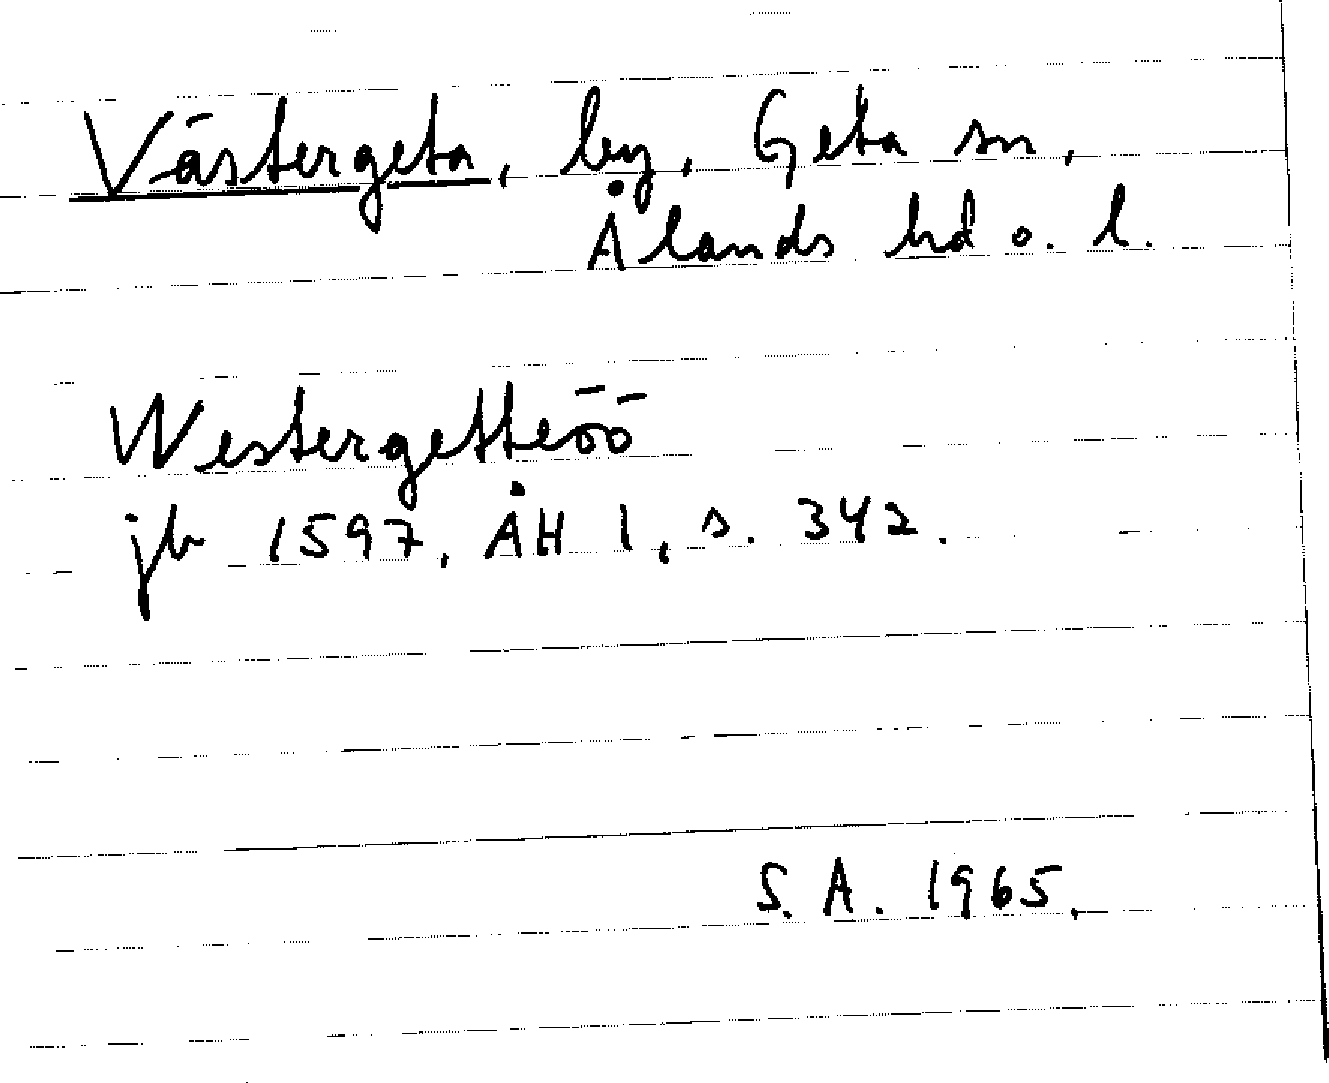 Västergeta, by, Geta sn,
Ålands hd o. l.
Westergetteöö
jb 1597, ÅH 1, s. 342.
S. A. 1965.